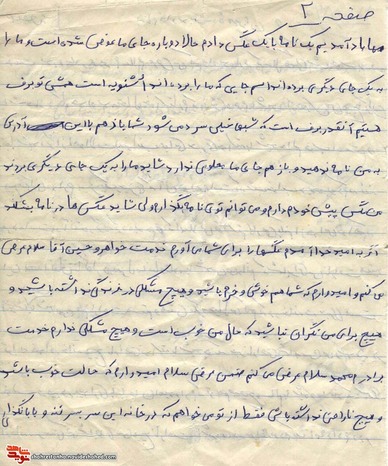 صفحه ۲
مهاباد آمدیم یک نامه با یک عکس دادم حالا دوباره جای ما عوض شده است و ما را
به یک جای دیگری برده اند اسم جایی که ما را برده اند اشنویه است همش تو برف
هستیم آنقدر برف است که شبها خیلی سرد می شود شما باز هم با این آدرس
به من نامه ندهید و باز هم جای ما معلومی ندارد شاید ما را به یک جای دیگری بردند
من عکس پیش خودم دارم و می توانم توی نامه بگذارم ولی شاید عکس ها در نامه بشکند
اگر به امید خدا آمدم عکسها را برای شما می آورم خدمت خواهر و حسین آقا سلام عرض
می کنم و امیدوارم که شما هم خوش و خرم باشید و هیچ مشکلی در زندگی نداشته باشید و
هیچ برای من نگران نباشید که حال من خوب است و هیچ مشکلی ندارم خدمت
برادرم محمد سلام عرض می کنم ضمن عرض سلام امیدوارم که حالت خوب باشد
و هیچ ناراحتی نداشته باشی فقط از تو می خواهم که در خانه این سر بسر ننه و بابا نگذار
shohrestanha.navideshahed.com